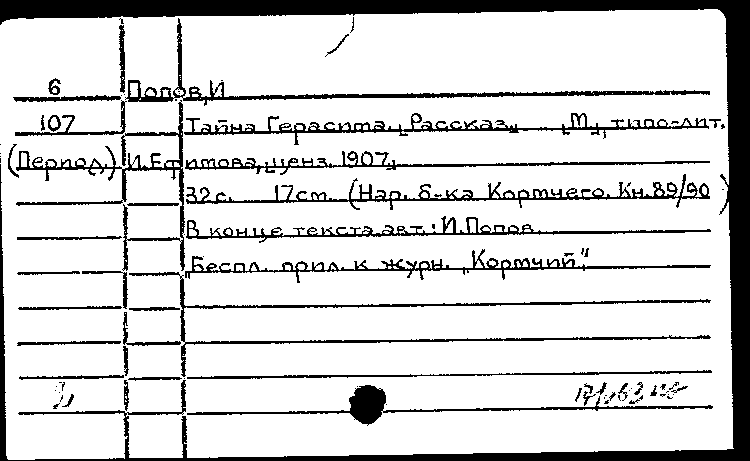 6 Попов, И
107 Тайна Герасима. [Рассказ] [М], типо-лит.
(Период.) И. Ефимова, ценз. 1907.
32 с. 17 см. (Нар. б-ка Кормчего. Кн. 89/90)
В конце текста авт.: И. Попов.
"Беспл. прил. к журн. „Кормчий"."